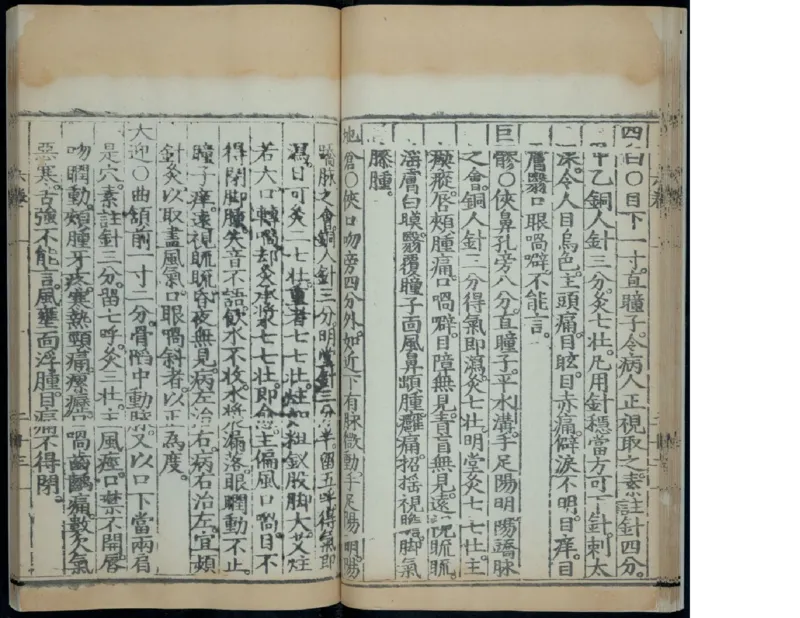 四白○目下一寸。直瞳子。令病人正視取之。素註針四分。
甲乙銅人針三分。灸七壯。凡用針穩當方可下針。刺太
深。令人目烏色。主頭痛。目眩。目赤痛。僻淚不明。目痒。目
膚翳。口眼喎僻。不能言。
巨髎○俠鼻孔旁八分。直瞳子。平水溝。手足陽明陽蹻脉
之會。銅人針三分。得氣即瀉。灸七壯。明堂灸七七壯。主
瘈瘲。唇頰腫痛。口喎僻。目障無見。青盲無見。遠視䀮䀮。
淫膚白膜。翳覆瞳子。面風鼻䪼腫癰痛。招搖視瞻。脚氣
膝腫。
地倉○俠口吻旁四分外。如近下有脉微動。手足陽明陽
蹻脉之會。銅人針三分。明堂針三分半。留五呼。得氣即
瀉。日可灸二七壯。重者七七壯。炷如粗釵股脚大。艾炷
若大。口轉喎。却灸承漿七七壯。即愈。主偏風口喎。目不
得閉。脚腫。失音不語。飲水不收。水漿漏落。眼瞤動不止。
瞳子痒。遠視䀮䀮。昏夜無見。病左治右。病右治左。宜頻
針灸以取盡風氣。口眼喎斜者以正為度。
大迎○曲頷前一寸二分。骨陷中動脉。又以口下當兩肩
是穴。素註針三分。留七呼。灸三壯。主風痙。口噤不開。唇
吻瞤動。頰腫牙疼。寒熱頸痛。瘰癧。口喎。齒齲痛。數欠氣
惡寒。舌強不能言。風壅面浮腫。目痛不得閉。